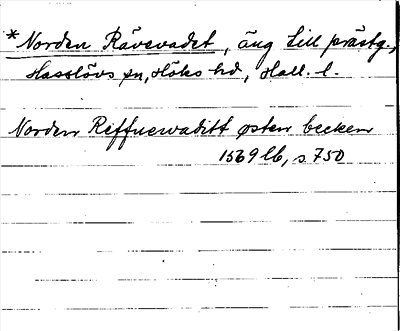 *Norden Rävevadet, äng till prästg.,
Hasslövs sn, Höks hd, Hall. l.
Norden Reffuewaditt østen becken
1569 lb, s 750